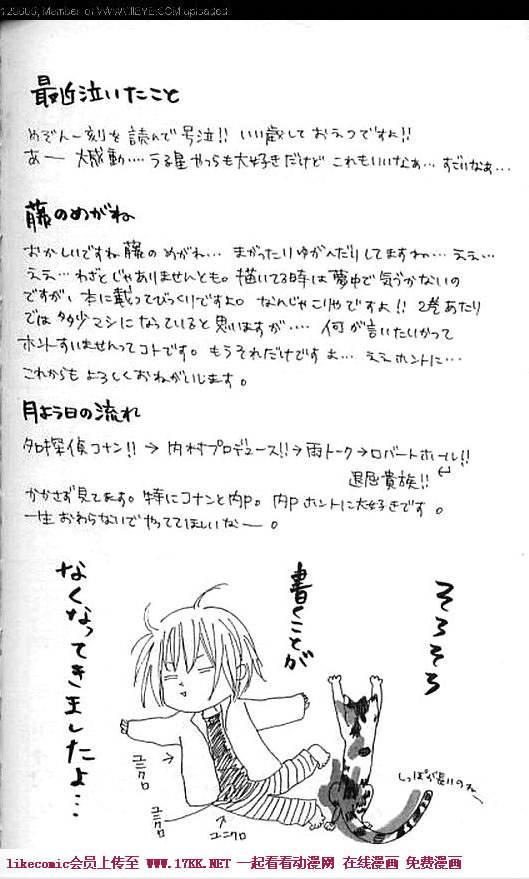 120605, Member of WWW.IIEYE.COM uploaded
最近泣いたこと
めぞん一刻を読んで号泣!! いい歳しておえつですよ!!
あー 大感動… うる星やつらも大好きだけど これもいいなぁ… すごいなぁ…
藤のめがね
おかしいですね藤のめがね… まがったりゆがんだりしてますね… ええ…
ええ…わざとじゃありませんとも。描いてる時は夢中で気づかないの
ですが、本に載ってびっくりですよ。なんじゃこりゃですよ!! 2巻あたり
では多少マシになっていると思いますが…. 何が言いたいかって
ホントすいませんってコトです。もうそれだけですよ… ええホントに…
これからもよろしくおねがいします。
月よう日の流れ
名探偵コナン!! → 内村プロデュース!! → 雨トーク → ロバートホール!!
退屈貴族!!
かかさず見てます。特にコナンと内P。内Pホントに大好きです。
一生おわらないでやっててほしいなー。
そろそろ
書くことが
なくなってきましたよ…
ユニクロ
ユニクロ
ユニクロ
しっぽが長いのね
likecomic会员上传至 WWW.17KK.NET 一起看看动漫网 在线漫画 免费漫画